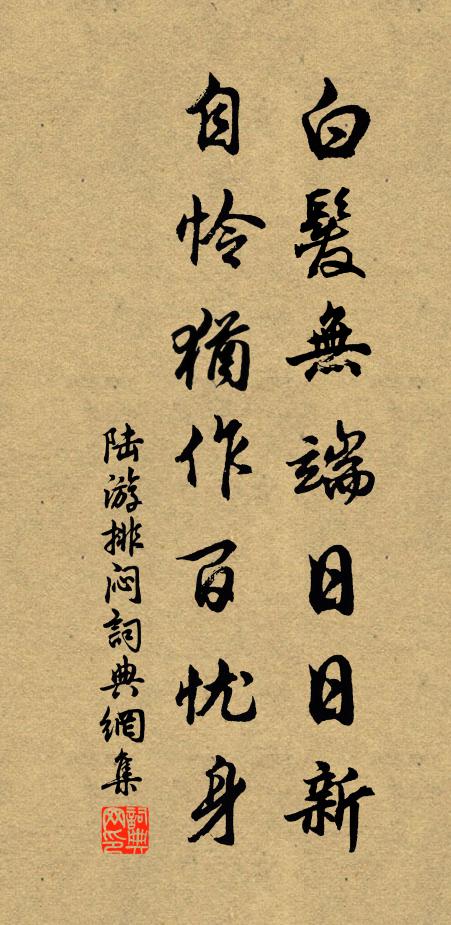 白髮無端日日新
自怜猶作百忧身
陆游排闷詞典網集
詞典网印